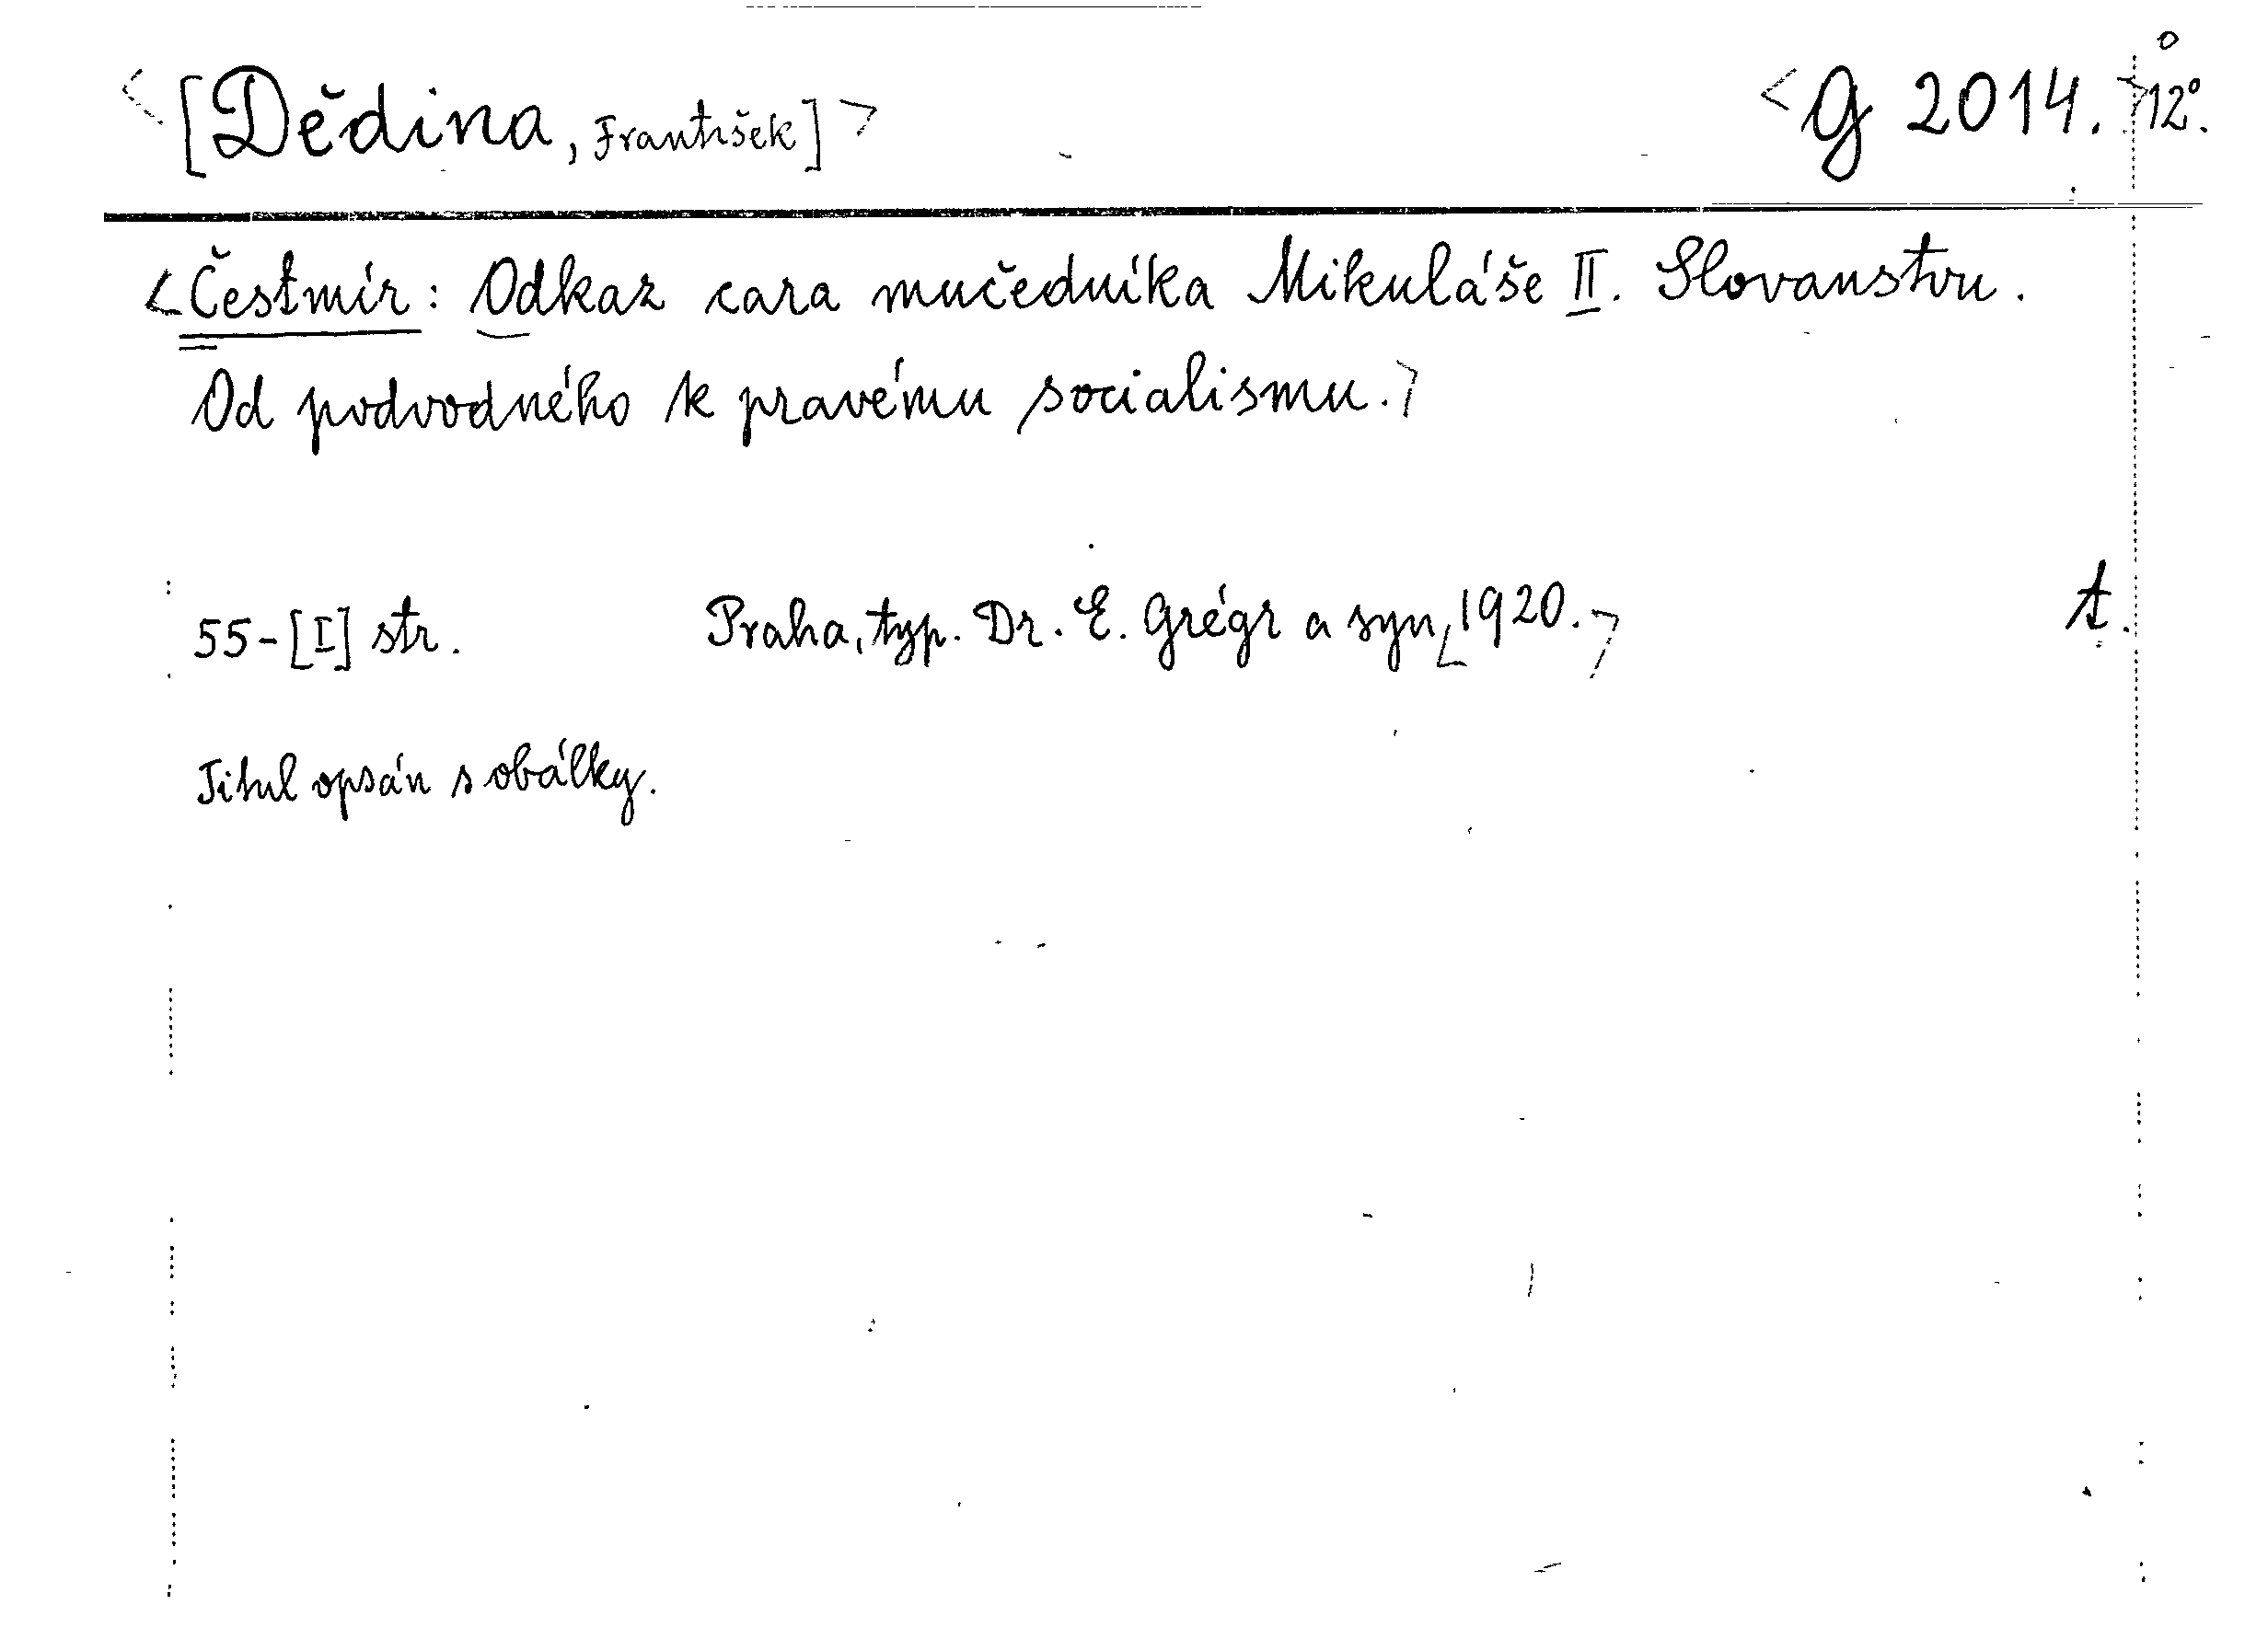 <[Dědina, František]> <G 2014.> 12°.
<Čestmír: Odkaz cara mučedníka Mikuláše II. Slovanstvu.
Od podvodného k pravému socialismu.>
55-[I] str. Praha, typ. Dr. E. Grégr a syn, <1920.> A.
Titul opsán s obálky.